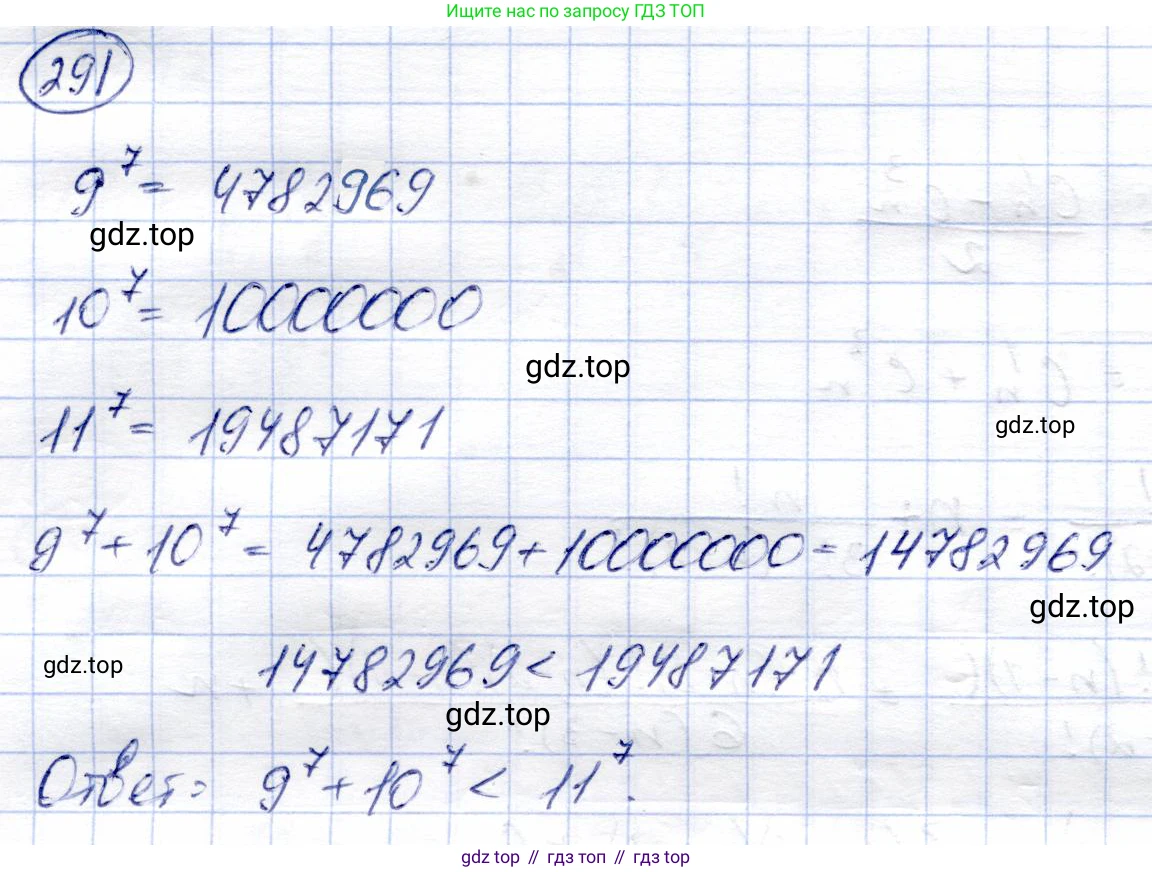 Ищите нас по запросу ГДЗ ТОП
291
9⁷ = 4782969
gdz.top
10⁷ = 10000000
gdz.top
11⁷ = 19487171
gdz.top
9⁷ + 10⁷ = 4782969 + 10000000 = 14782969
gdz.top
14782969 < 19487171
gdz.top
gdz.top
Ответ: 9⁷ + 10⁷ < 11⁷.
gdz top // гдз топ // gdz top